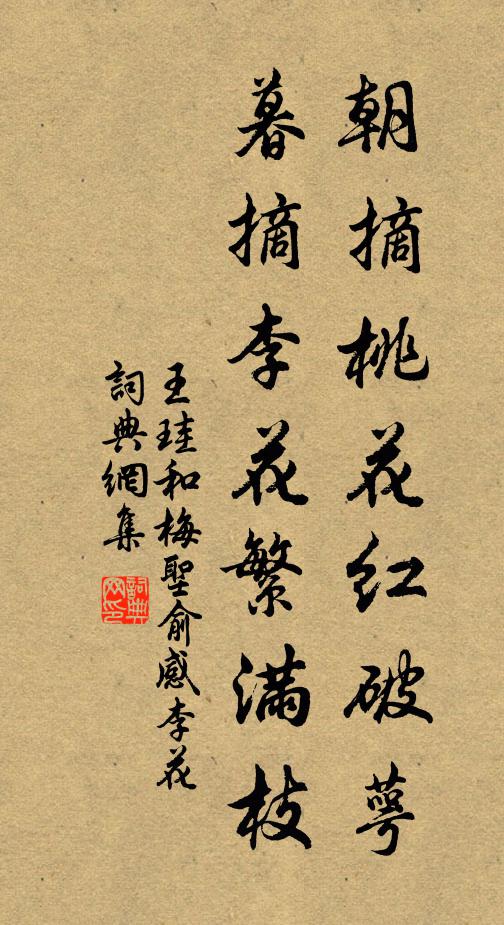 朝摘桃花红破萼
暮摘李花繁满枝
王珪和梅聖俞感李花
詞典網集
詞典网印